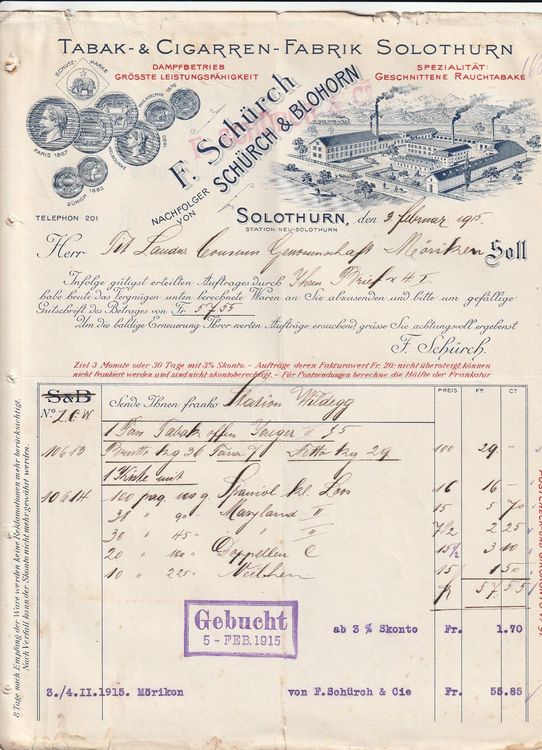 TABAK- & CIGARREN-FABRIK SOLOTHURN
DAMPFBETRIEB
GRÖSSTE LEISTUNGSFÄHIGKEIT
SPEZIALITÄT:
GESCHNITTENE RAUCHTABAKE
SCHUTZ-MARKE
PHILADELPHIA 1876
PARIS 1867
MELBOURNE 1881
ZÜRICH 1883
F. Schürch
NACHFOLGER VON SCHÜRCH & BLOHORN
TELEPHON 201
SOLOTHURN, den 3 Februar 1915.
STATION: NEU-SOLOTHURN
Herr Tit Landw. Consum Genossenschaft Möriken Soll
Infolge gütigst erteilten Auftrages durch Ihren Brief
habe heute das Vergnügen unten berechnete Waren an Sie abzusenden und bitte um gefällige
Gutschrift des Betrages von Fr 57.55
Um die baldige Erneuerung Ihrer werten Aufträge ersuchend grüsse Sie achtungsvoll ergebenst
F. Schürch.
Ziel 3 Monate oder 30 Tage mit 3% Skonto. - Aufträge deren Fakturawert Fr. 20.- nicht übersteigt, können
nicht frankiert werden und sind nicht skontoberechtigt. - Für Postsendungen berechne die Hälfte der Frankatur.
S&B
No. Sende Ihnen franko Station Wildegg PREIS FR CT
1 Fass Tabak offen Jäger II 35
10613 Brutto kg 36 Tara 7 Netto kg 29 100 29 -
1 Kiste mit
10614 100 paq 100 g Spaniol kl. Loss 16 16 -
38 " 90 " Maryland II 15 5 70
30 " 45 " " II 7½ 2 25
20 " 100 " Doppellen C 15½ 3 10
10 " 220 " 15 1 50
fr 57.55
Gebucht
5 - FEB. 1915
ab 3 % Skonto Fr. 1.70
3./4.II.1915. Mörikon von F.Schürch & Cie Fr. 55.85
8 Tage nach Empfang der Ware werden keine Reklamationen mehr berücksichtigt.
Nach Verfall kann der Skonto nicht mehr gewährt werden.